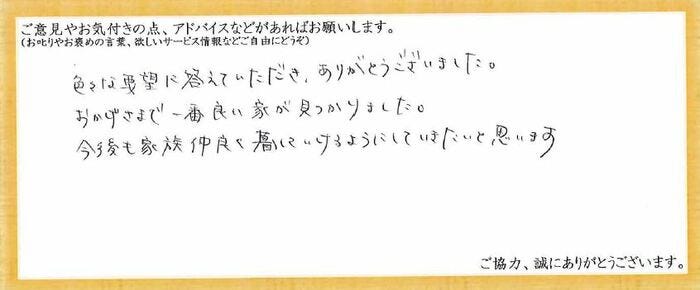 ご意見やお気付きの点、アドバイスなどがあればお願いします。
(お叱りやお褒めの言葉、欲しいサービス情報などご自由にどうぞ)
色々な要望に答えていただき、ありがとうございました。
おかげさまで一番良い家が見つかりました。
今後も家族仲良く暮していけるようにしていきたいと思います
ご協力、誠にありがとうございます。